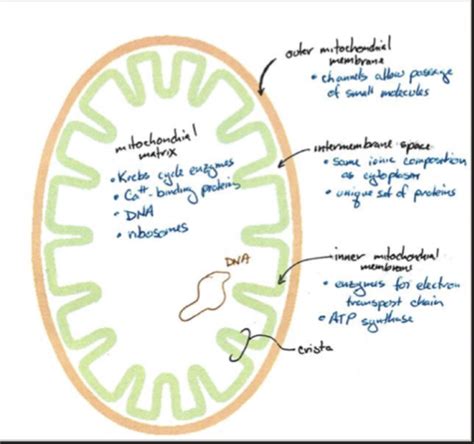 outer mitochondrial
membrane
• channels allow passage
of small molecules
mitochondrial
matrix
• Krebs cycle enzymes
• Ca++-binding proteins
• DNA
• ribosomes
intermembrane space
• same ionic composition
as cytoplasm
• unique set of proteins
DNA
inner mitochondrial
membrane
• enzymes for electron
transport chain
• ATP synthase
crista